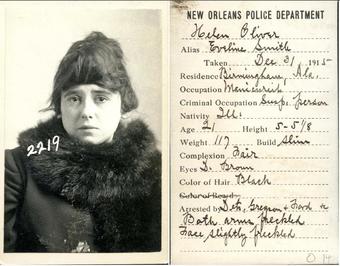 2219
NEW ORLEANS POLICE DEPARTMENT
Helen Oliver
Alias Eveline Smith
Taken Dec 31 1915
Residence Birmingham, Ala.
Occupation Manicurist
Criminal Occupation Susp. person
Nativity Ill.
Age 21 Height 5-5 1/8
Weight 117 Build Slim
Complexion Fair
Eyes D. Brown
Color of Hair Black
Color of Beard
Arrested by Dets.
Both arms freckled
Face slightly freckled